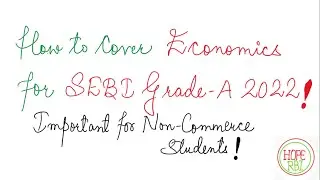 How to cover Economics
for SEBI Grade-A 2022!
Important for Non-Commerce
Students!
HOPE
RBI